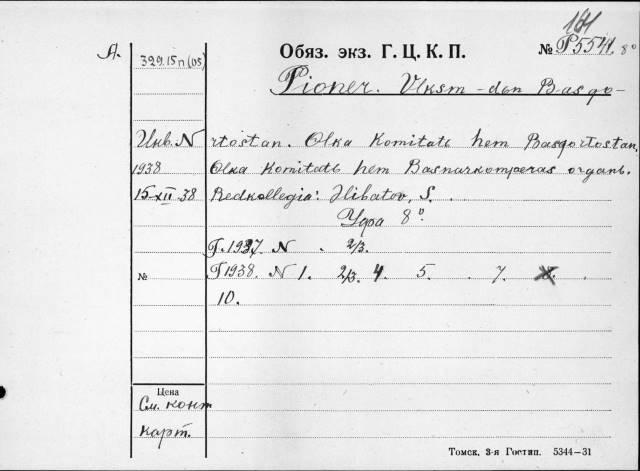 181
А. 329.15п(05) Обяз. экз. Г. Ц. К. П. № Р5541 8°
Pioner. Vlksm-dən Basqo-
Инв. N rtostan. Olka Komitatь hem Basqortostan.
1938 Olka Komitatь hem Basnarkomperas organь.
15-XII 38 Redkollegia: Hibatov, S.
Уфа 8°.
Г. 1937 N . 2/3.
№ Г 1938. N 1. 2/3. 4. 5. . 7. 8. .
10.
Цена
См. конт
карт.
Томск. 3-я Гостип. 5344—31